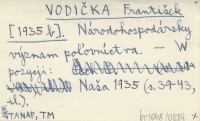 VODIČKA František
[1935 b]. Národohospodársky
význam poľovníctva. — W
pozycji:
Naša 1935 (s. 39-43,
il.).
TANAP, TM